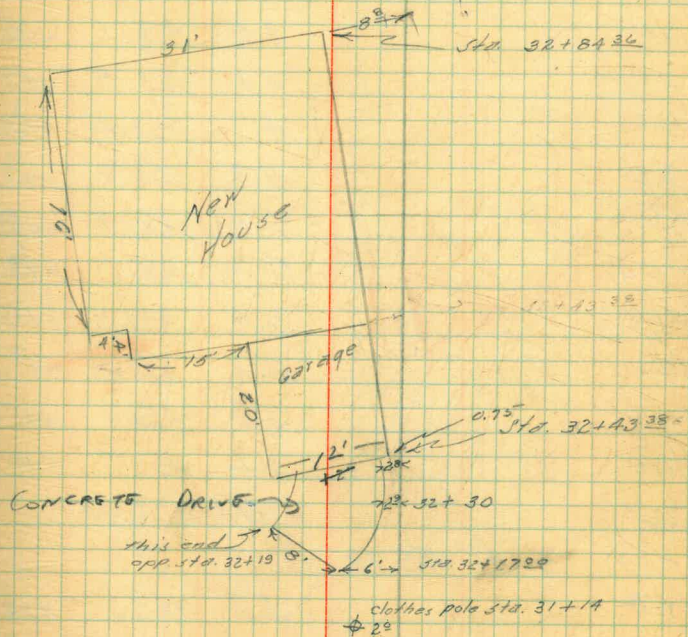 31'
8 3
Sta. 32+84 36
New
House
4' 4'
15'
Garage
20'
0.75
Sta. 32+43 38
12'
CONCRETE DRIVE
32+30
this end
opp. sta. 32+19
8'
6'
sta. 32+17 20
clothes pole sta. 31+14
2 0